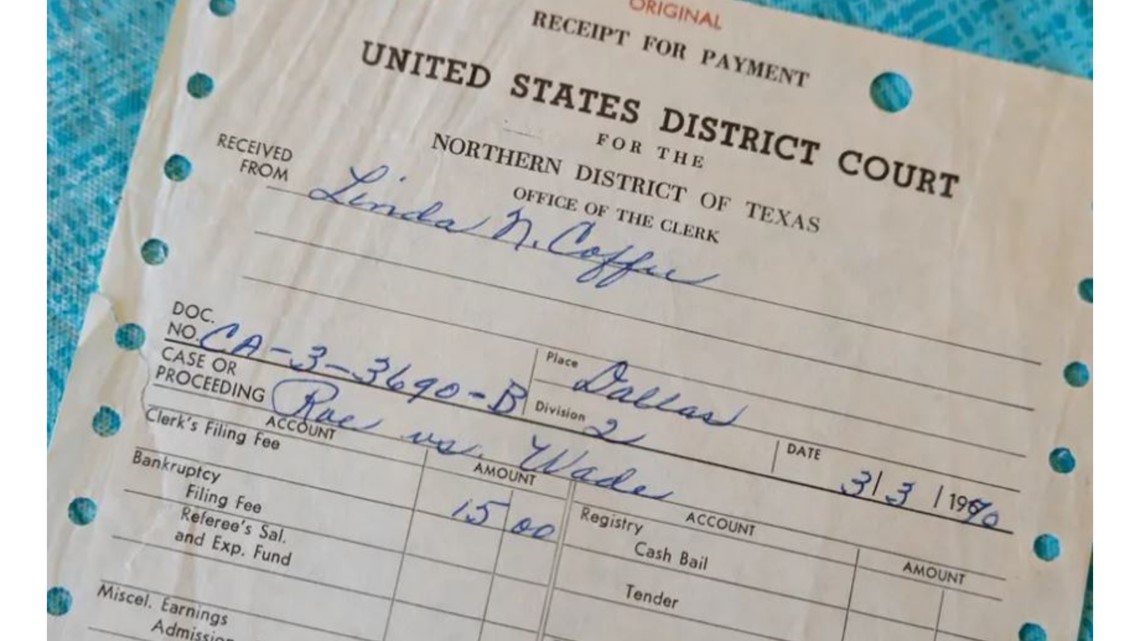 ORIGINAL
RECEIPT FOR PAYMENT
UNITED STATES DISTRICT COURT
FOR THE
NORTHERN DISTRICT OF TEXAS
OFFICE OF THE CLERK
RECEIVED
FROM Linda N. Coffee
DOC.
NO. CA-3-3690-B
Place Dallas
Division 2
CASE OR
PROCEEDING Roe vs. Wade
DATE 3/3/1970
ACCOUNT AMOUNT
Clerk's Filing Fee 15 00
Bankruptcy
Filing Fee
Referee's Sal.
and Exp. Fund
Miscel. Earnings
ACCOUNT AMOUNT
Registry
Cash Bail
Tender